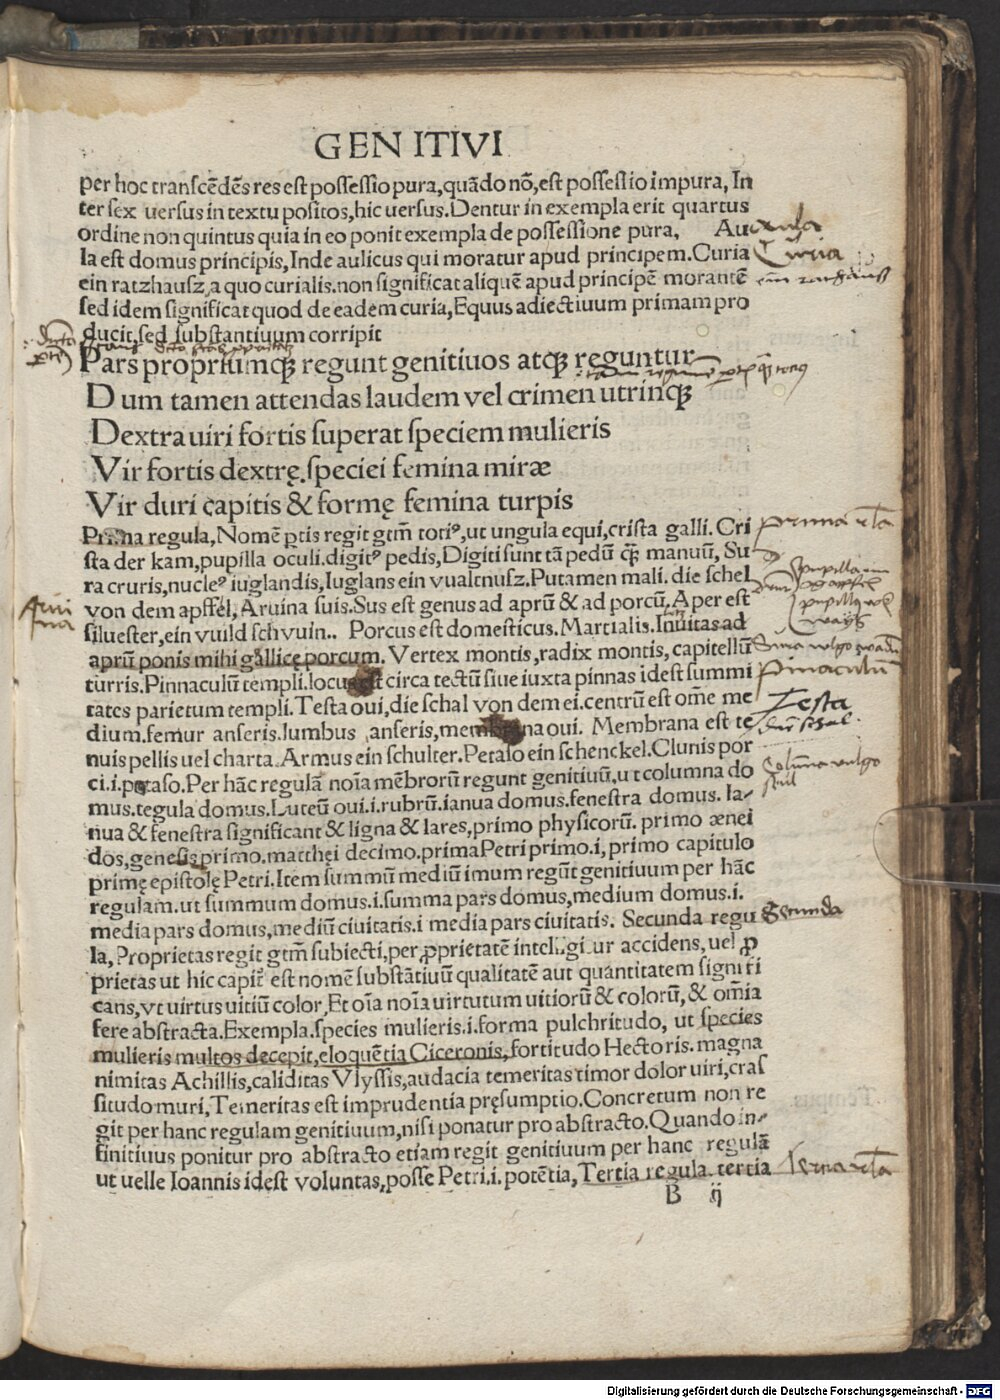 GENITIVI
per hoc transcēdēs res est possessio pura, quādo nō, est possessio impura, In
ter sex uersus in textu positos, hic uersus. Dentur in exempla erit quartus
ordine non quintus quia in eo ponit exempla de possessione pura, Au
la est domus principis, Inde aulicus qui moratur apud principem. Curia
ein ratzhausz, a quo curialis. non significat aliquē apud principē morantē
sed idem significat quod de eadem curia, Equus adiectiuum primam pro
ducit, sed substantiuum corripit
Pars propriumqꝫ regunt genitiuos atqꝫ reguntur
Dum tamen attendas laudem vel crimen utrinqꝫ
Dextra uiri fortis superat speciem mulieris
Vir fortis dextrę. speciei femina miræ
Vir duri capitis & formę femina turpis
Prima regula, Nomē ptis regit gtm̄ totiꝰ, ut ungula equi, crista galli. Cri
sta der kam, pupilla oculi. digitꝰ pedis, Digiti sunt tā pedū qꝫ manuū, Su
ra cruris, nucleꝰ iuglandis, Iuglans ein vualtnusz. Putamen mali. die schel
von dem apffel, Aruina suis. Sus est genus ad aprū & ad porcū. Aper est
siluester, ein vuild schvuin.. Porcus est domesticus. Martialis. Inuitas ad
aprū ponis mihi gallicę porcum. Vertex montis, radix montis, capitellū
turris. Pinnaculū templi. locus est circa tectū siue iuxta pinnas idest summi
tates parietum templi. Testa oui, die schal von dem ei. centrū est om̄e me
dium. femur anseris. lumbus anseris, membrana oui. Membrana est te
nuis pellis uel charta. Armus ein schulter. Petaso ein schenckel. Clunis por
ci. i. petaso. Per hāc regulā noīa mēbrorū regunt genitiuū, ut columna do
mus. tegula domus. Luteū oui. i. rubrū. ianua domus. fenestra domus. Ia-
nua & fenestra significant & ligna & lares, primo physicorū. primo ænei
dos, genesis primo. matthęi decimo. prima Petri primo. i, primo capitulo
primę epistolę Petri. Item summū mediū imum regūt genitiuum per hāc
regulam. ut summum domus. i. summa pars domus, medium domus. i.
media pars domus, mediū ciuitatis. i media pars ciuitatis. Secunda regu
la, Proprietas regit gtm̄ subiecti, per ꝓprietatē intelligitur accidens, uel ꝓ
prietas ut hic capit̄ est nomē substātiuū qualitatē aut quantitatem signifi
cans, vt uirtus uitiū color, Et oīa noīa uirtutum uitiorū & colorū, & om̄ia
fere abstracta. Exempla. species mulieris. i. forma pulchritudo, ut species
mulieris multos decepit, eloquētia Ciceronis, fortitudo Hectoris. magna
nimitas Achillis, caliditas Vlyssis, audacia temeritas timor dolor uiri, cras
situdo muri, Temeritas est imprudentia pręsumptio. Concretum non re
git per hanc regulam genitiuum, nisi ponatur pro abstracto. Quando in-
finitiuus ponitur pro abstracto etiam regit genitiuum per hanc regulā
ut uelle Ioannis idest voluntas, posse Petri. i. potētia, Tertia regula. tertia
B ij
aula
Curia
Arui
na
pinaculū
Testa
Secunda
Digitalisierung gefördert durch die Deutsche Forschungsgemeinschaft - DFG